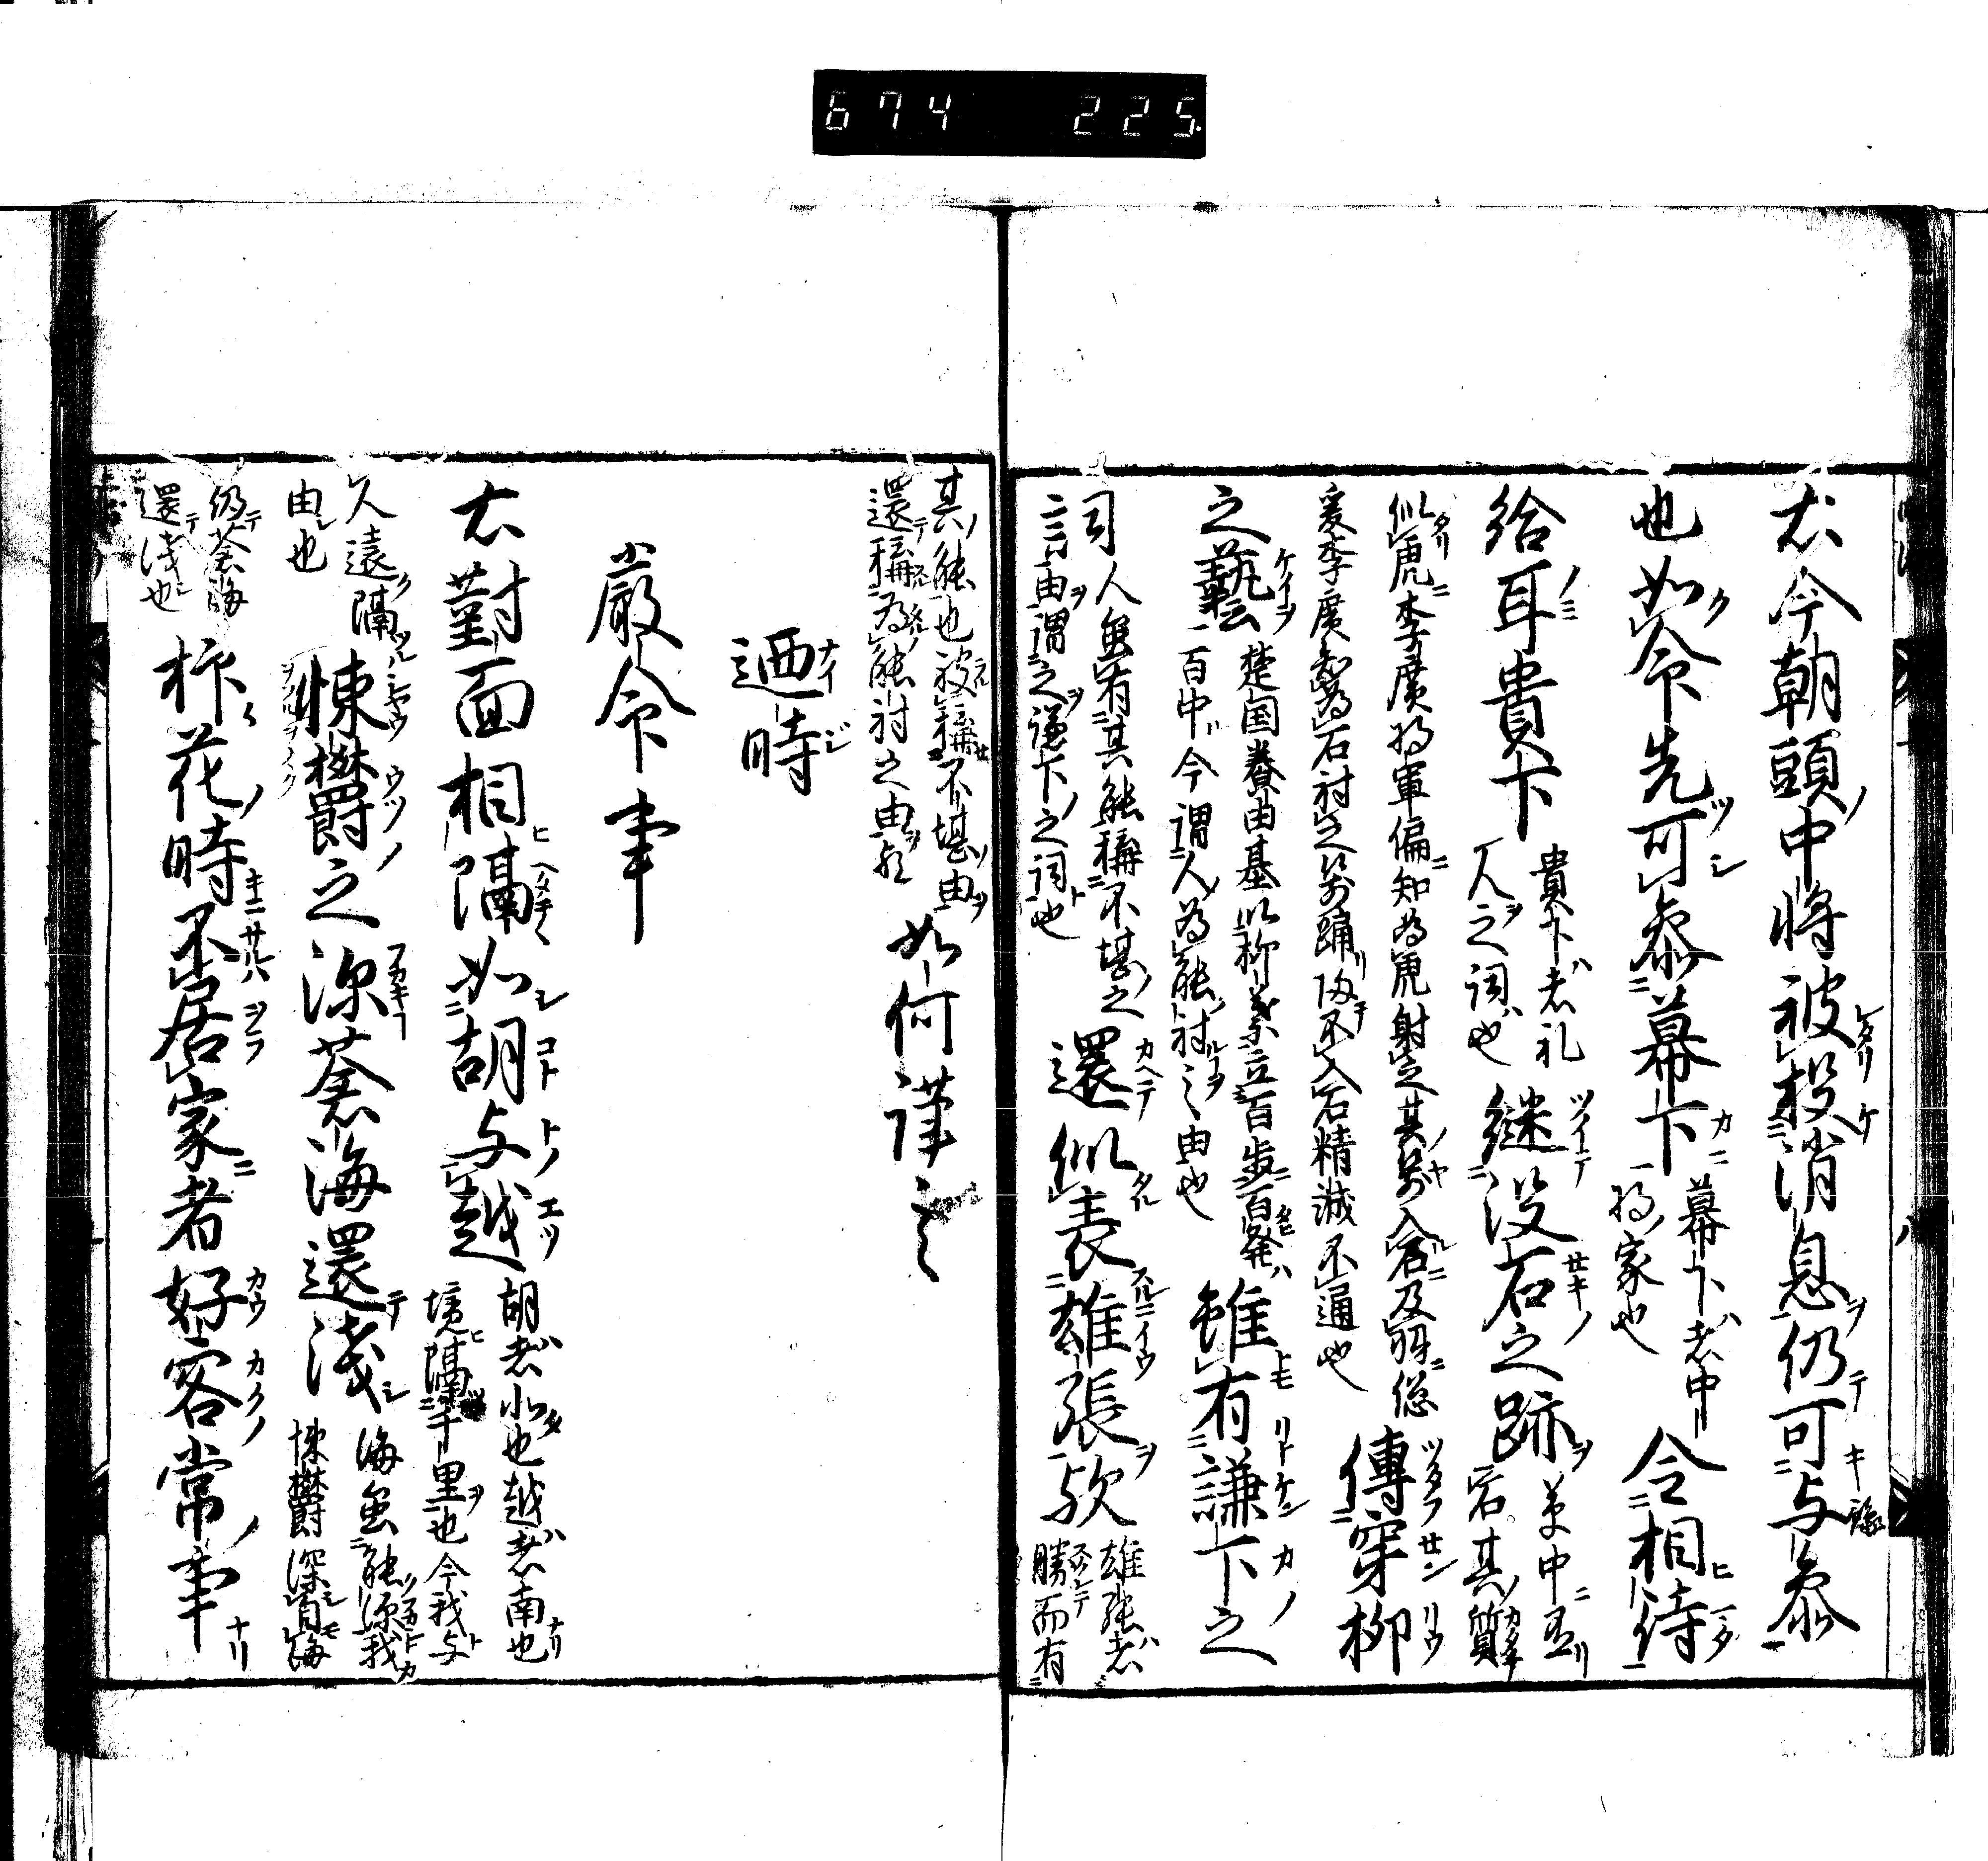 674 225
右今朝頭中将被投消息仍可与参
也如今先可参幕下
幕下者中
将家也
令相待
給耳貴下
貴下者礼
人之詞也
継没石之跡
草中
石其質
似虎李廣将軍偏知為虎射之其箭入石及羽
爰李廣知為石射之箭踊
不入石精誠不通也
傳穿柳
之藝
楚国養由基以柳葉立百歩百発
百中今謂人為能射之由也
雖有謙下之
詞
人無有其能称不堪之
言由謂之謙下之詞也
還似表雄張欤
雄張者
勝而有
其能也被称不堪由
還称為能射之由欤
如何謹言
廼時
嚴令事
右對面相隔如胡与越
胡者北也越者南也
境隔千里也今我与
人遠隔
由也
悚欝之深蒼海還浅
海無能深我
悚欝深自海
仍蒼海
還浅也
花時不居家者好客常事